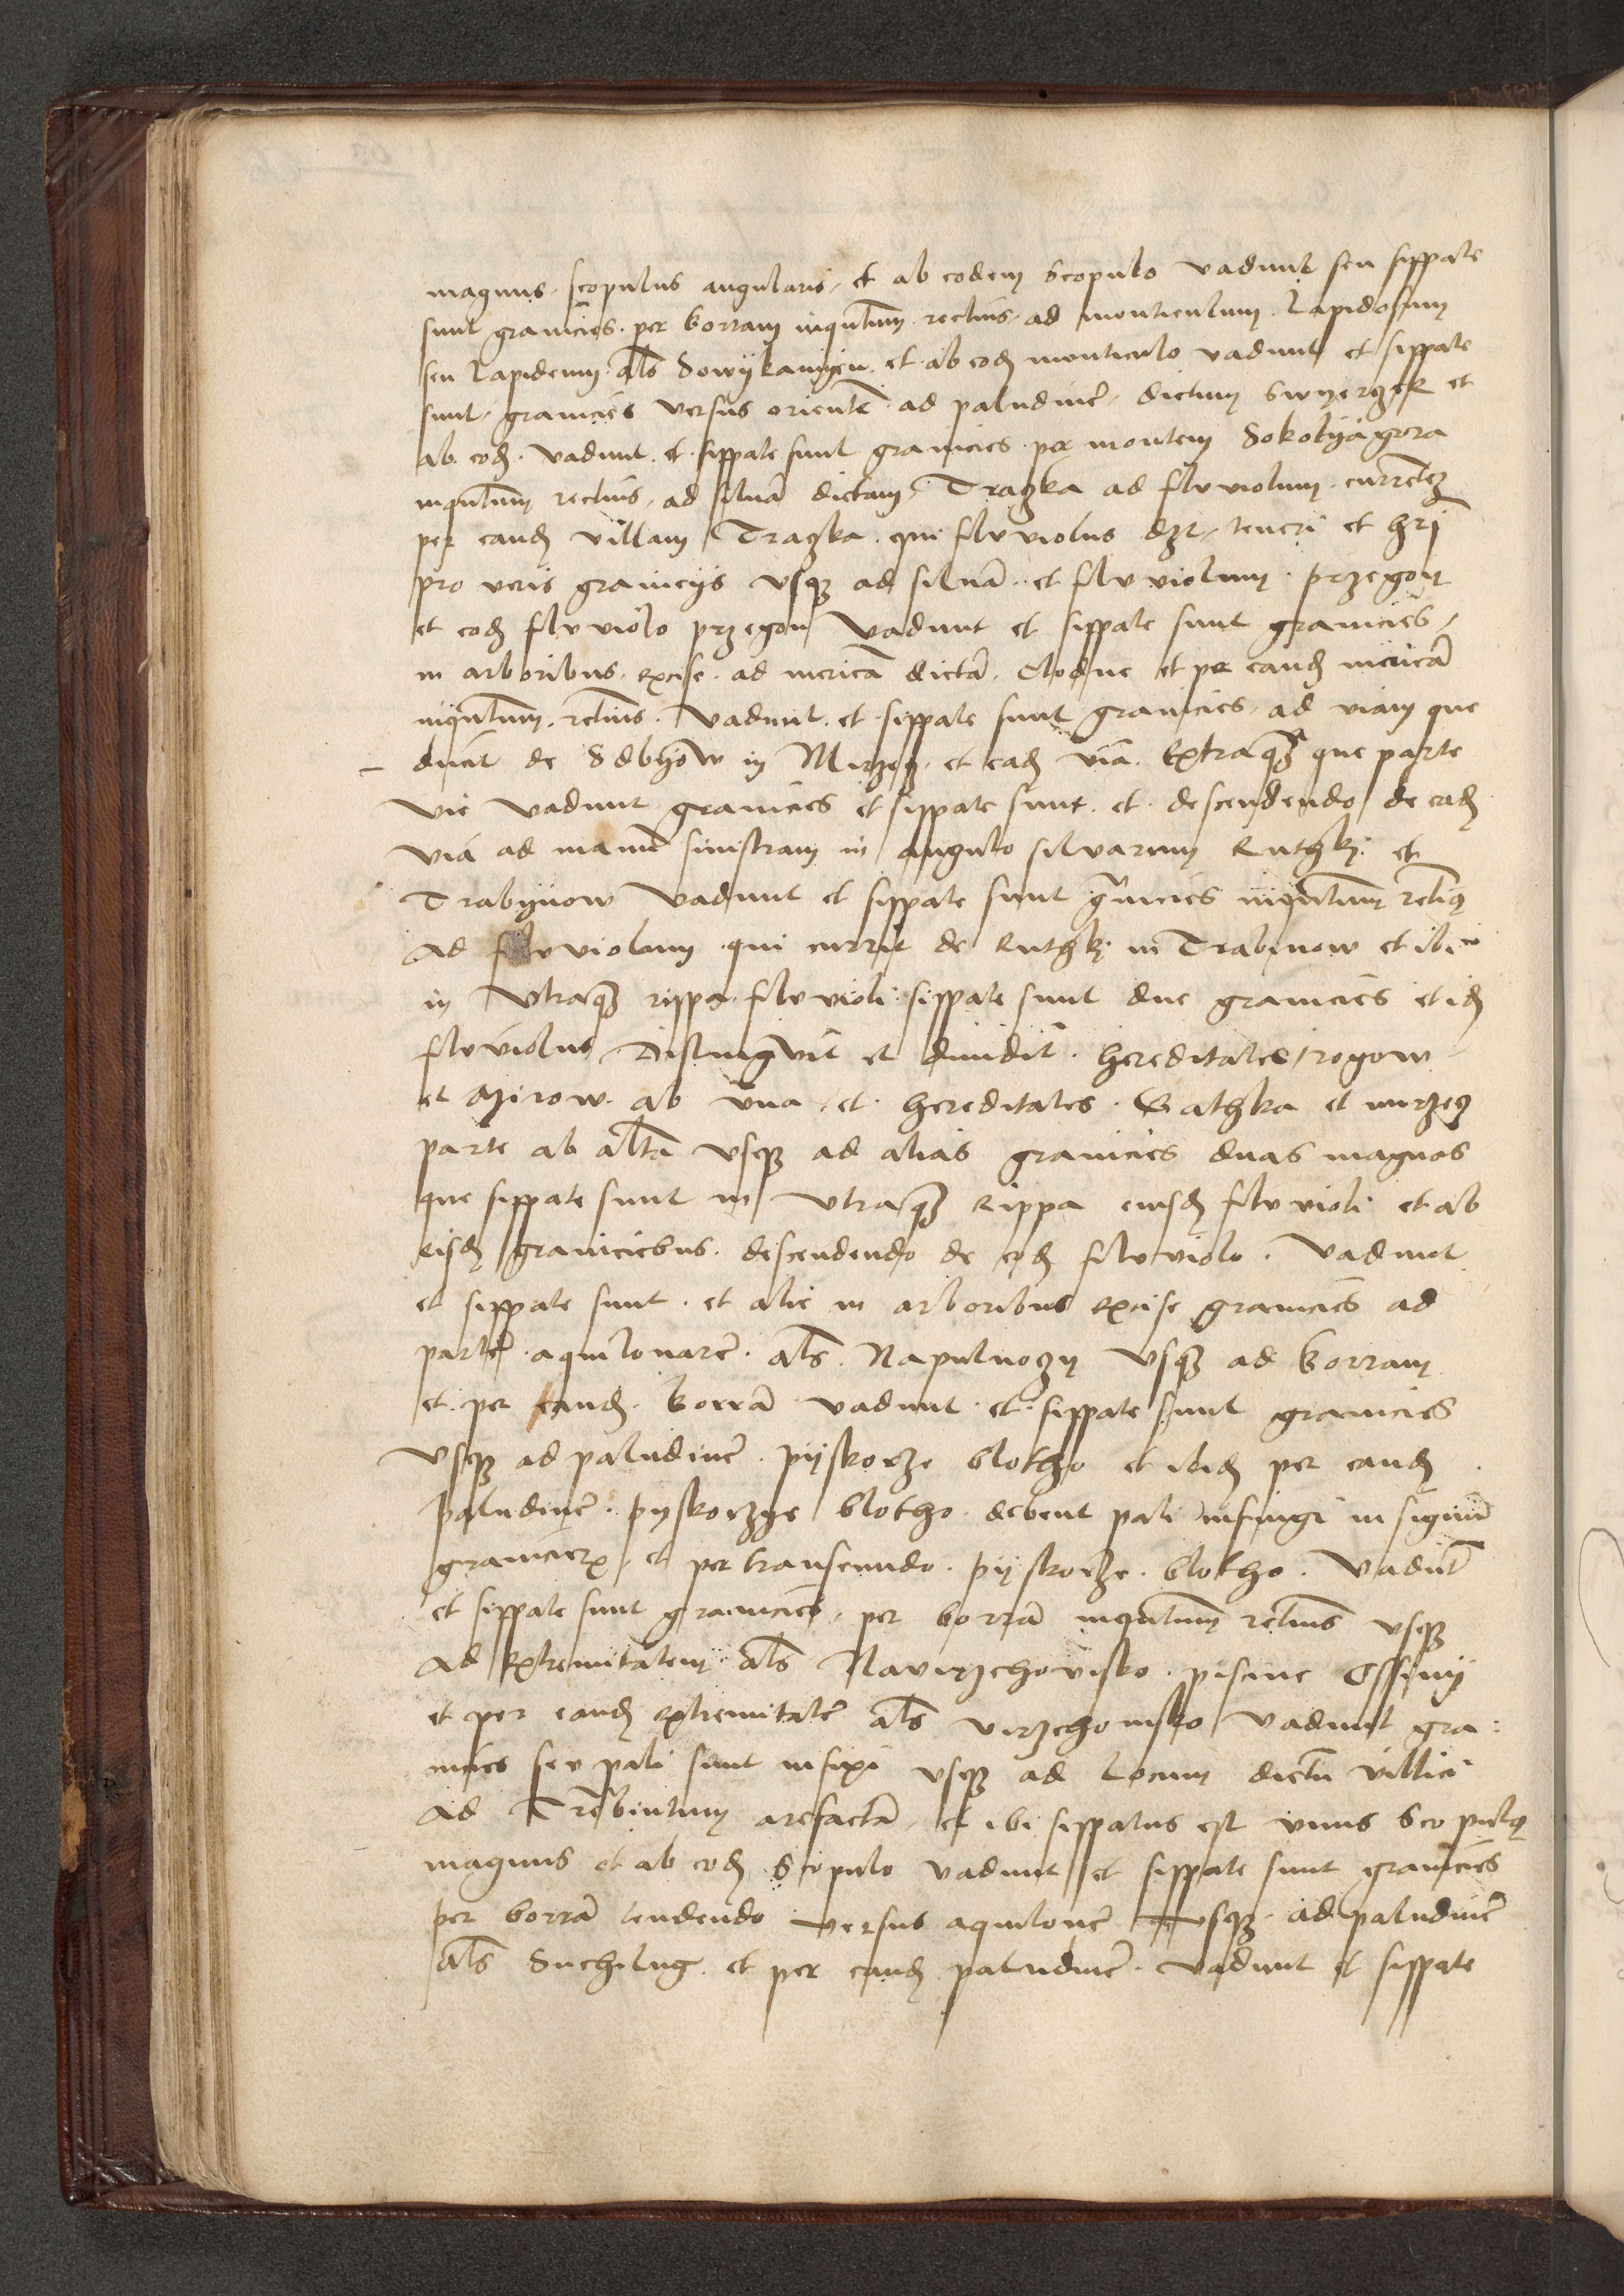 magnus, scopulus angularis, et ab eodem scopulo vadunt seu sippate
sunt granicies. per borram inqntum rectius, ad monticulum. Lapidosum
seu Lapidem als Sowykamyen. et ab eod monticulo vadunt et sippate
sunt, granicies versus oriente ad paludine, dictum Swyerzek et
ab eod. vadunt. et sippate sunt granicies per montem Sokolyagora
inqntum rectius, ad silua dictam, Traczka ad fluviolum currentez
per eand villam Traczka. qui fluviolus dzt, teneri et hri
pro veris granicijs vsqz ad silua et fluviolum. przegon
et eod fluviolo przegon vadunt et sippate sunt granicies,
in arboribus, excise, ad merica dicta. Clodne et per eand mirica
inqntum. rctius. Vadunt. et sippate sunt granicies, ad viam que
ducit de Sdbyow in Mirzecz, et ead via. Extraqz que parte
vie vadunt granicies et sippate sunt. et descendendo de ead
via ad manu sinistram in angulo silvarum Ruthky et
Trabynow vadunt et sippate sunt granicies inqntum rctiq
Ad fluviolum qui currit de Ruthky in Trabynow et ibi
in vtraqz rippa fluvioli sippate sunt due granicies et id
fluviolus distingvit et diuidit. hereditates rogow
et Mirow. ab vna, et hereditates. Gathka et mirzecz
parte ab alta vsqz ad alias granicies duas magnas
que sippate sunt in vtraqz Rippa eiusd fluvioli et ab
eisd graniciebus. descendendo de eod fluviolo. Vadunt
et sippate sunt. et alie in arboribus excise granicies ad
parte aquilonare. als. Napulnoczy vsqz ad borram
et per eand. borra vadunt et sippate sunt granicies
vsqz ad paludine. pyskorze blotho et ibid per eand
paludine. pyskorzye blotho debent pali infingi in signu
granicierx, et per transeundo. pyskorze. blotho. Vadut
et sippate sunt granicies, per borra inqntum rctius vsqz
Ad extremitatem als Navirzchovisko. piscine Ossiny
et per eand extremitate als virzchonisko vadunt gra:
nicies seu pali sunt infixi vsqz ad Locum dictu villici
Ad Trebintum arefacta, et ibi sippatus est vnus Scopulq
magnus et ab eod scopulo vadunt et sippate sunt granicies
per borra tendendo versus aquilone vsqz ad paludine
als Suchilug. et per eand paludine. vadunt et sippate